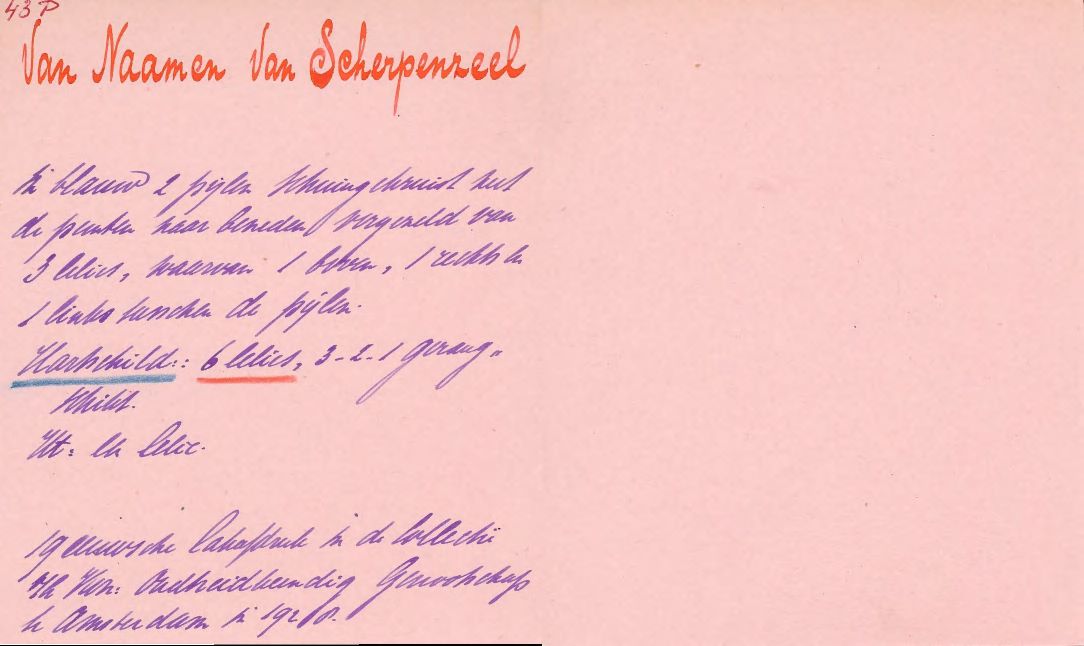 43 P
Van Naamen van Scherpenzeel
In blauw 2 pijlen schuingekruist met
de punten naar beneden, vergezeld van
3 lelies, waarvan 1 boven, 1 rechts en
1 links tusschen de pijlen.
Hartschild:: 6 lelies, 3-2-1 gerang„
schikt.
Ht: Een lelie.
19 eeuwsche lakafdruk in de collectie
v/h Kon: Oudheidkundig Genootschap
te Amsterdam in 1928.